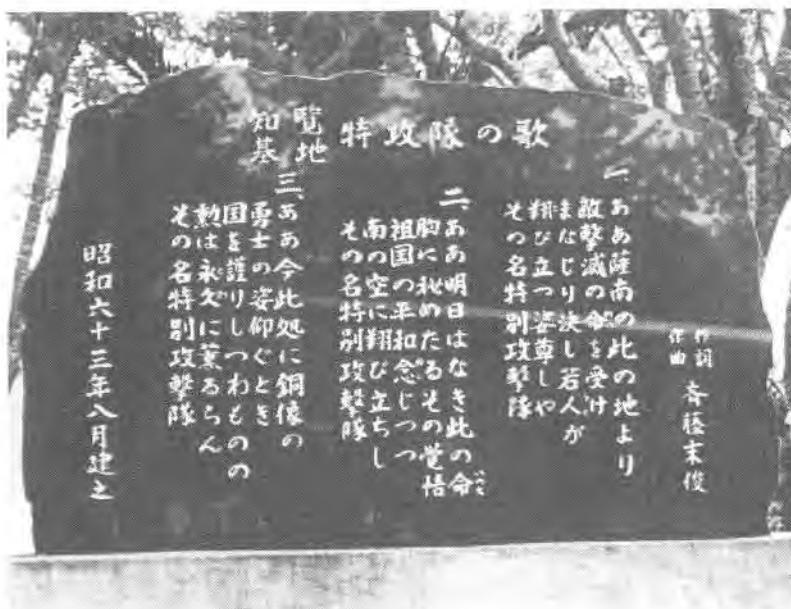 知覧
基地
特攻隊の歌
作詞
作曲 斉藤末俊
一、ああ薩南の此の地より
敵撃滅の命を受け
まなじり決し若人が
翔び立つ姿尊しや
その名特別攻撃隊
二、ああ明日はなき此の命
胸に秘めたるその覚悟
祖国の平和念じつつ
南の空に翔び立ちし
その名特別攻撃隊
三、ああ今此処に銅像の
勇士の姿仰ぐとき
国を護りしつわものの
勲は永久に薫るらん
その名特別攻撃隊
昭和六十三年八月建之